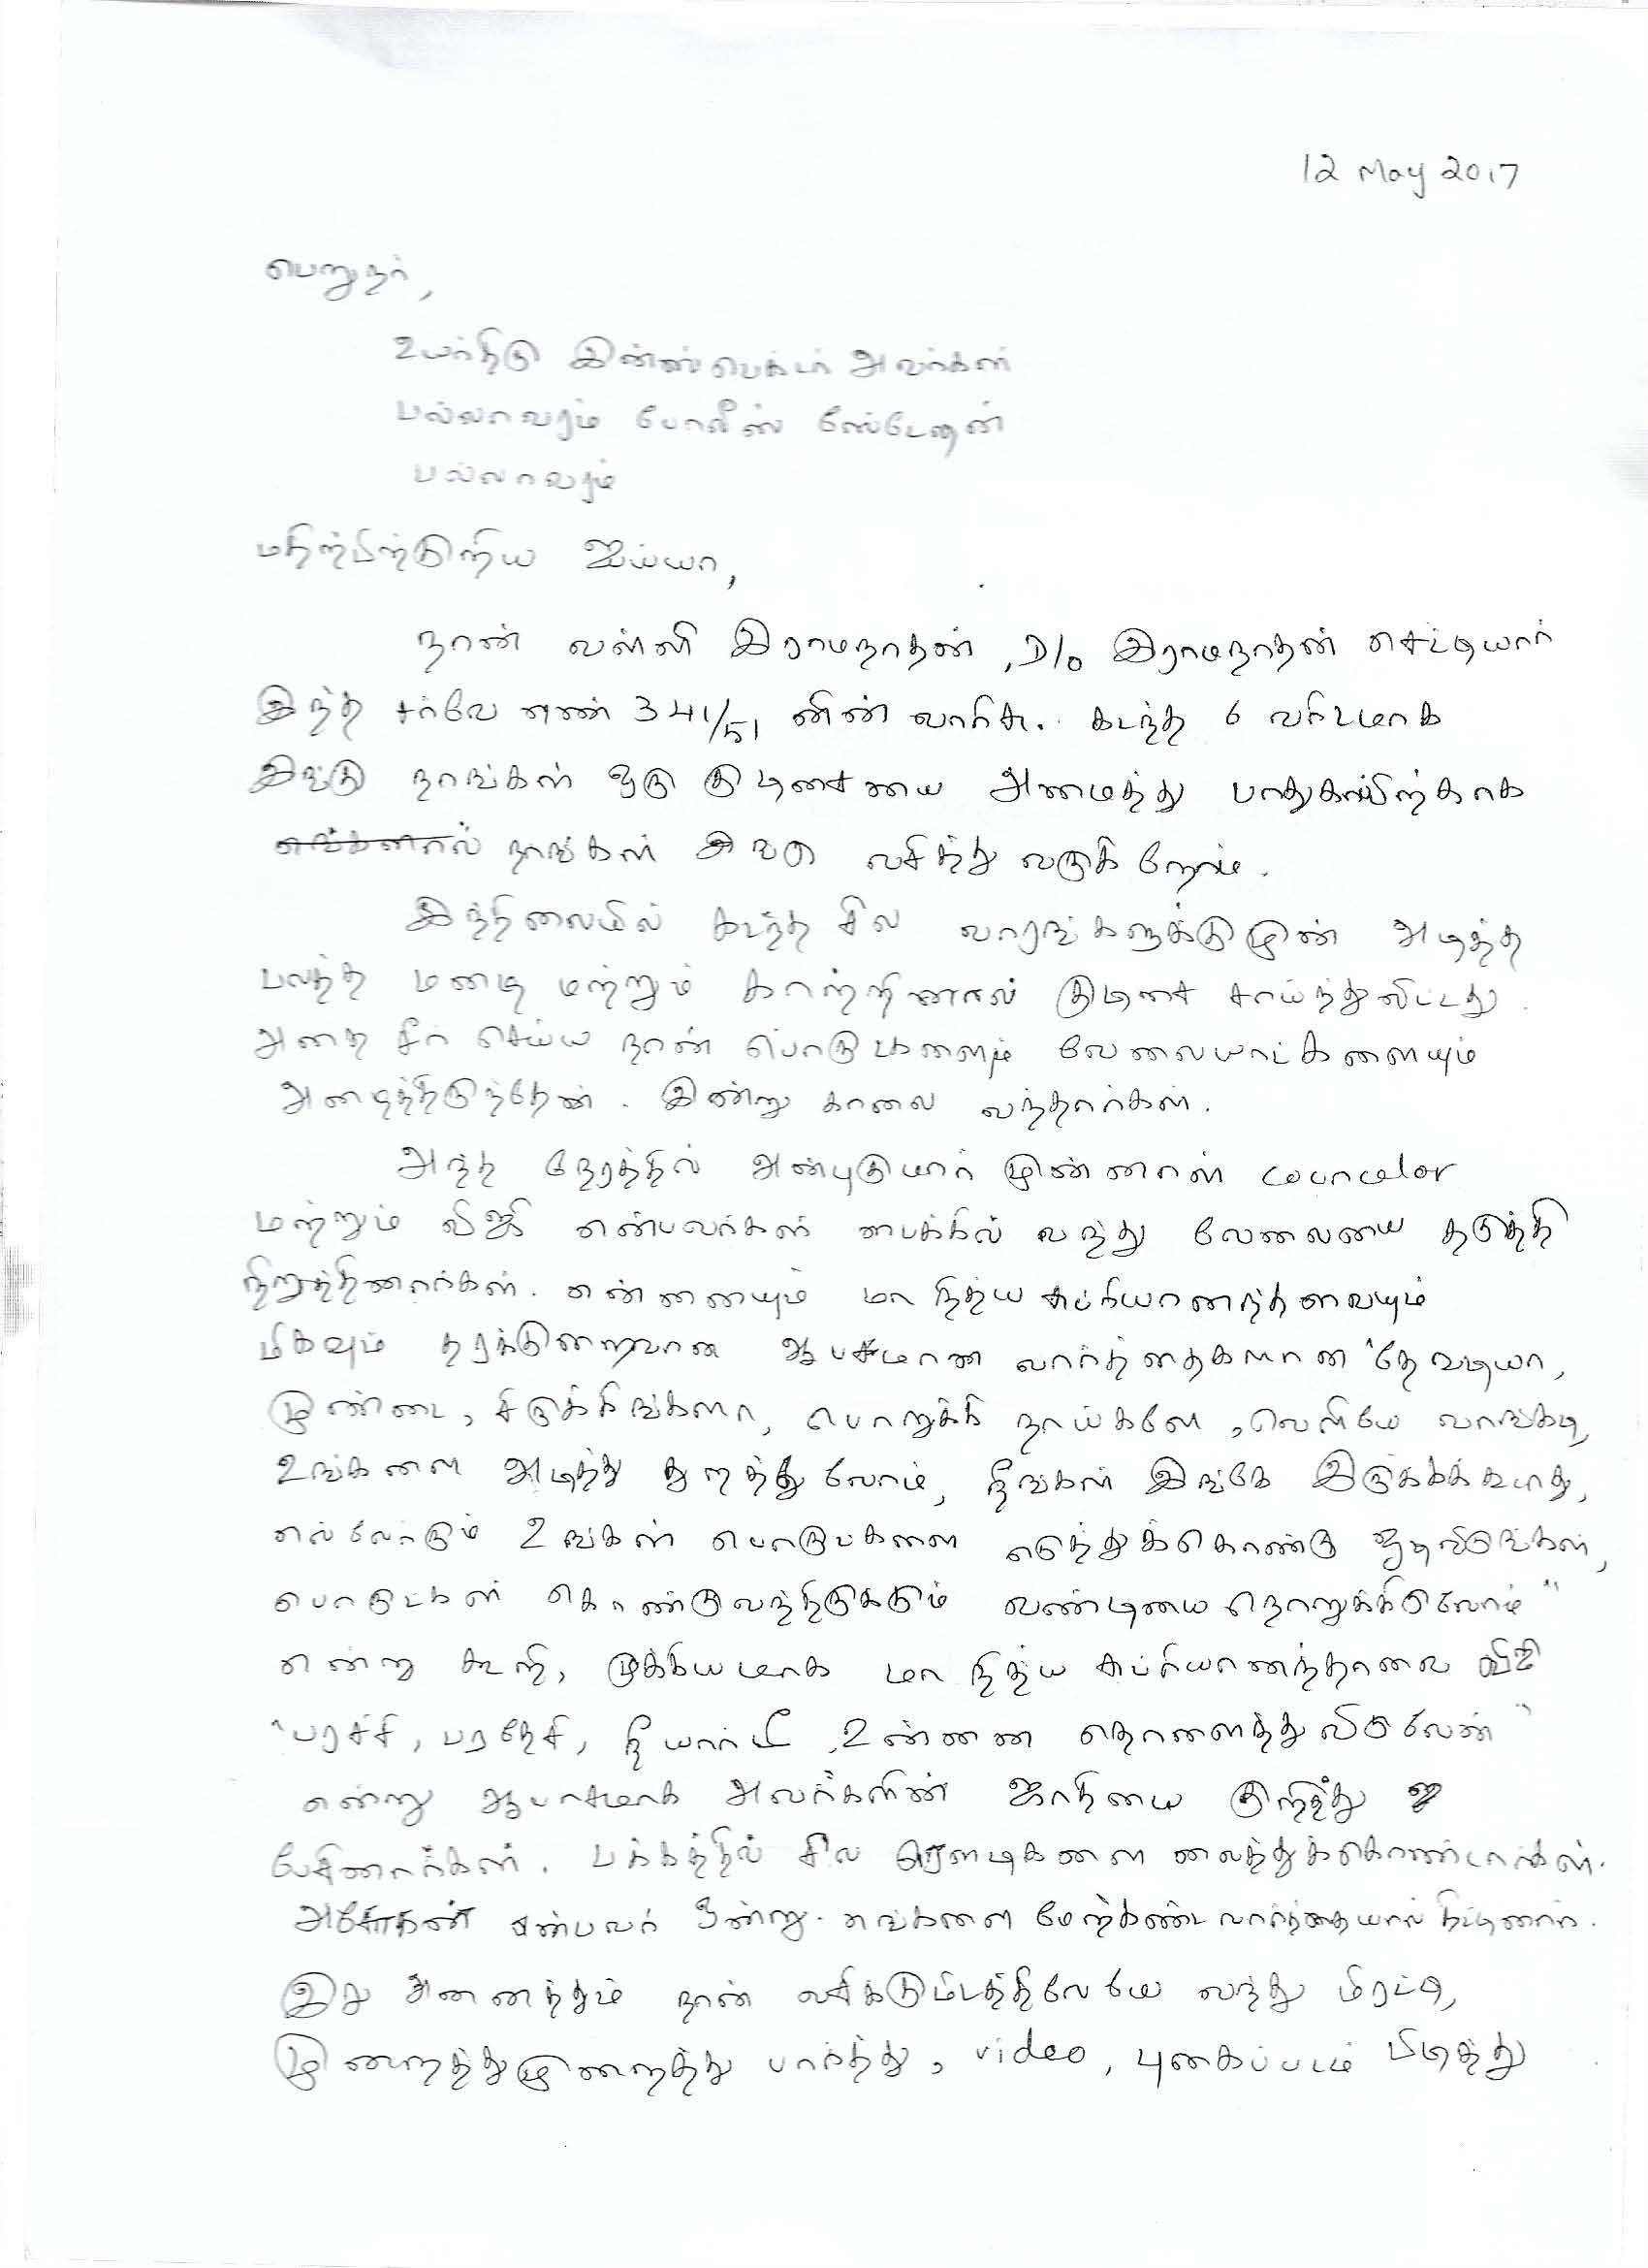 12 May 2017
பெறுநர்,
உயர்திரு இன்ஸ்பெக்டர் அவர்கள்
பல்லாவரம் போலீஸ் ஸ்டேஷன்
பல்லாவரம்
மதிற்பிற்குறிய ஐய்யா,
நான் வள்ளி இராமநாதன், D/o இராமநாதன் செட்டியார்
இந்த சர்வே எண் 341/51 னின் வாரிசு. கடந்த 6 வருடமாக
இங்கு நாங்கள் ஒரு குடிசையை அமைத்து பாதுகாப்பிற்காக
எங்களால் நாங்கள் அங்கு வசித்து வருகிறோம்.
இந்நிலையில் கடந்த சில வாரங்களுக்குமுன் அடித்த
பலத்த மழை மற்றும் காற்றினால் குடிசை சாய்ந்துவிட்டது.
அதை சீர் செய்ய நான் பொருட்களையும் வேலையாட்களையும்
அழைத்திருந்தேன். இன்று காலை வந்தார்கள்.
அந்த நேரத்தில் முன்னாள் councelor
மற்றும் விஜி என்பவர்கள் பைக்கில் வந்து வேலையை தடுத்தி
நிறுத்தினார்கள். என்னையும் மா நித்ய சுப்ரியானந்தாவையும்
மிகவும் தரக்குறைவான ஆபாசமான வார்த்தைகளான "தேவடியா,
முண்டை, சிருக்கிங்களா, பொறுக்கி நாய்களே, வெளியே வாங்கடி,
உங்களை அடித்து துரத்துவோம், நீங்கள் இங்கே இருக்கக்கூடாது,
எல்லோரும் உங்கள் பொருட்களை எடுத்துக்கொண்டு ஓடிவிடுங்கள்,
பொருட்கள் கொண்டுவந்திருக்கும் வண்டியை நொறுக்கிடுவோம்"
என்று கூறி, முக்கியமாக மா நித்ய சுப்ரியானந்தாவை விஜி
"பரச்சி, பரதேசி, நீ யார்டீ, உன்னை தொலைத்து விடுவேன்"
என்று ஆபாசமாக அவர்களின் ஜாதியை குறித்து
பேசினார்கள். பக்கத்தில் சில ரௌடிகளை வைத்துக்கொண்டார்கள்.
அசோகன் என்பவர் இன்று எங்களை மேற்கண்ட வார்த்தையால் திட்டினார்.
இது அனைத்தும் நான் வசிக்குமிடத்திலேயே வந்து மிரட்டி,
முறைத்துமுறைத்து பார்த்து, video, புகைப்படம் பிடித்து